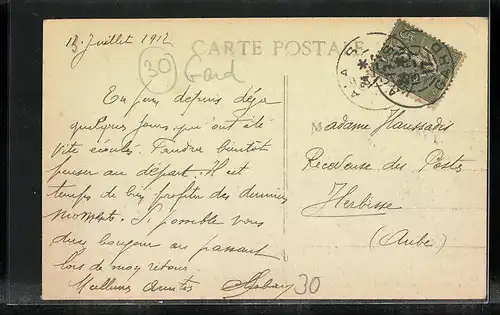 13 Juillet 1912
CARTE POSTALE
30 Gard
depuis déja
quelques jours qui ont été
vite écoulés. Faudra bientôt
penser au départ. Il est
temps de bien profiter des derniers
moments. Si possible vous
dirai bonjour en passant
lors de mon retour
Meilleures amitiés
30
Madame Haussadis
Receveuse des Postes
Herbisse
(Aube)